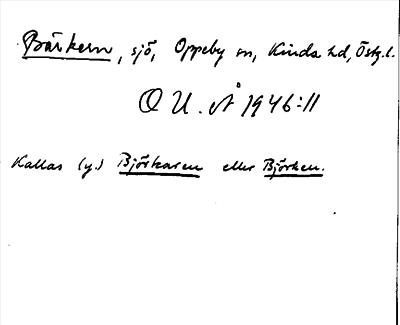 Bärkern, sjö, Oppeby sn, Kinda hd, Östg.l.
O U. Å 1946:11
Kallas (y.) Björkaren eller Björken.